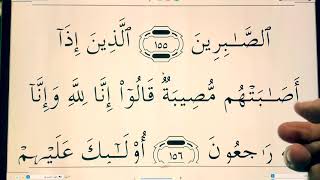 ٱلصَّٰبِرِينَ ١٥٥ ٱلَّذِينَ إِذَآ
أَصَٰبَتْهُم مُّصِيبَةٌ قَالُوٓا۟ إِنَّا لِلَّهِ وَإِنَّآ
رَٰجِعُونَ ١٥٦ أُو۟لَٰٓئِكَ عَلَيْهِمْ